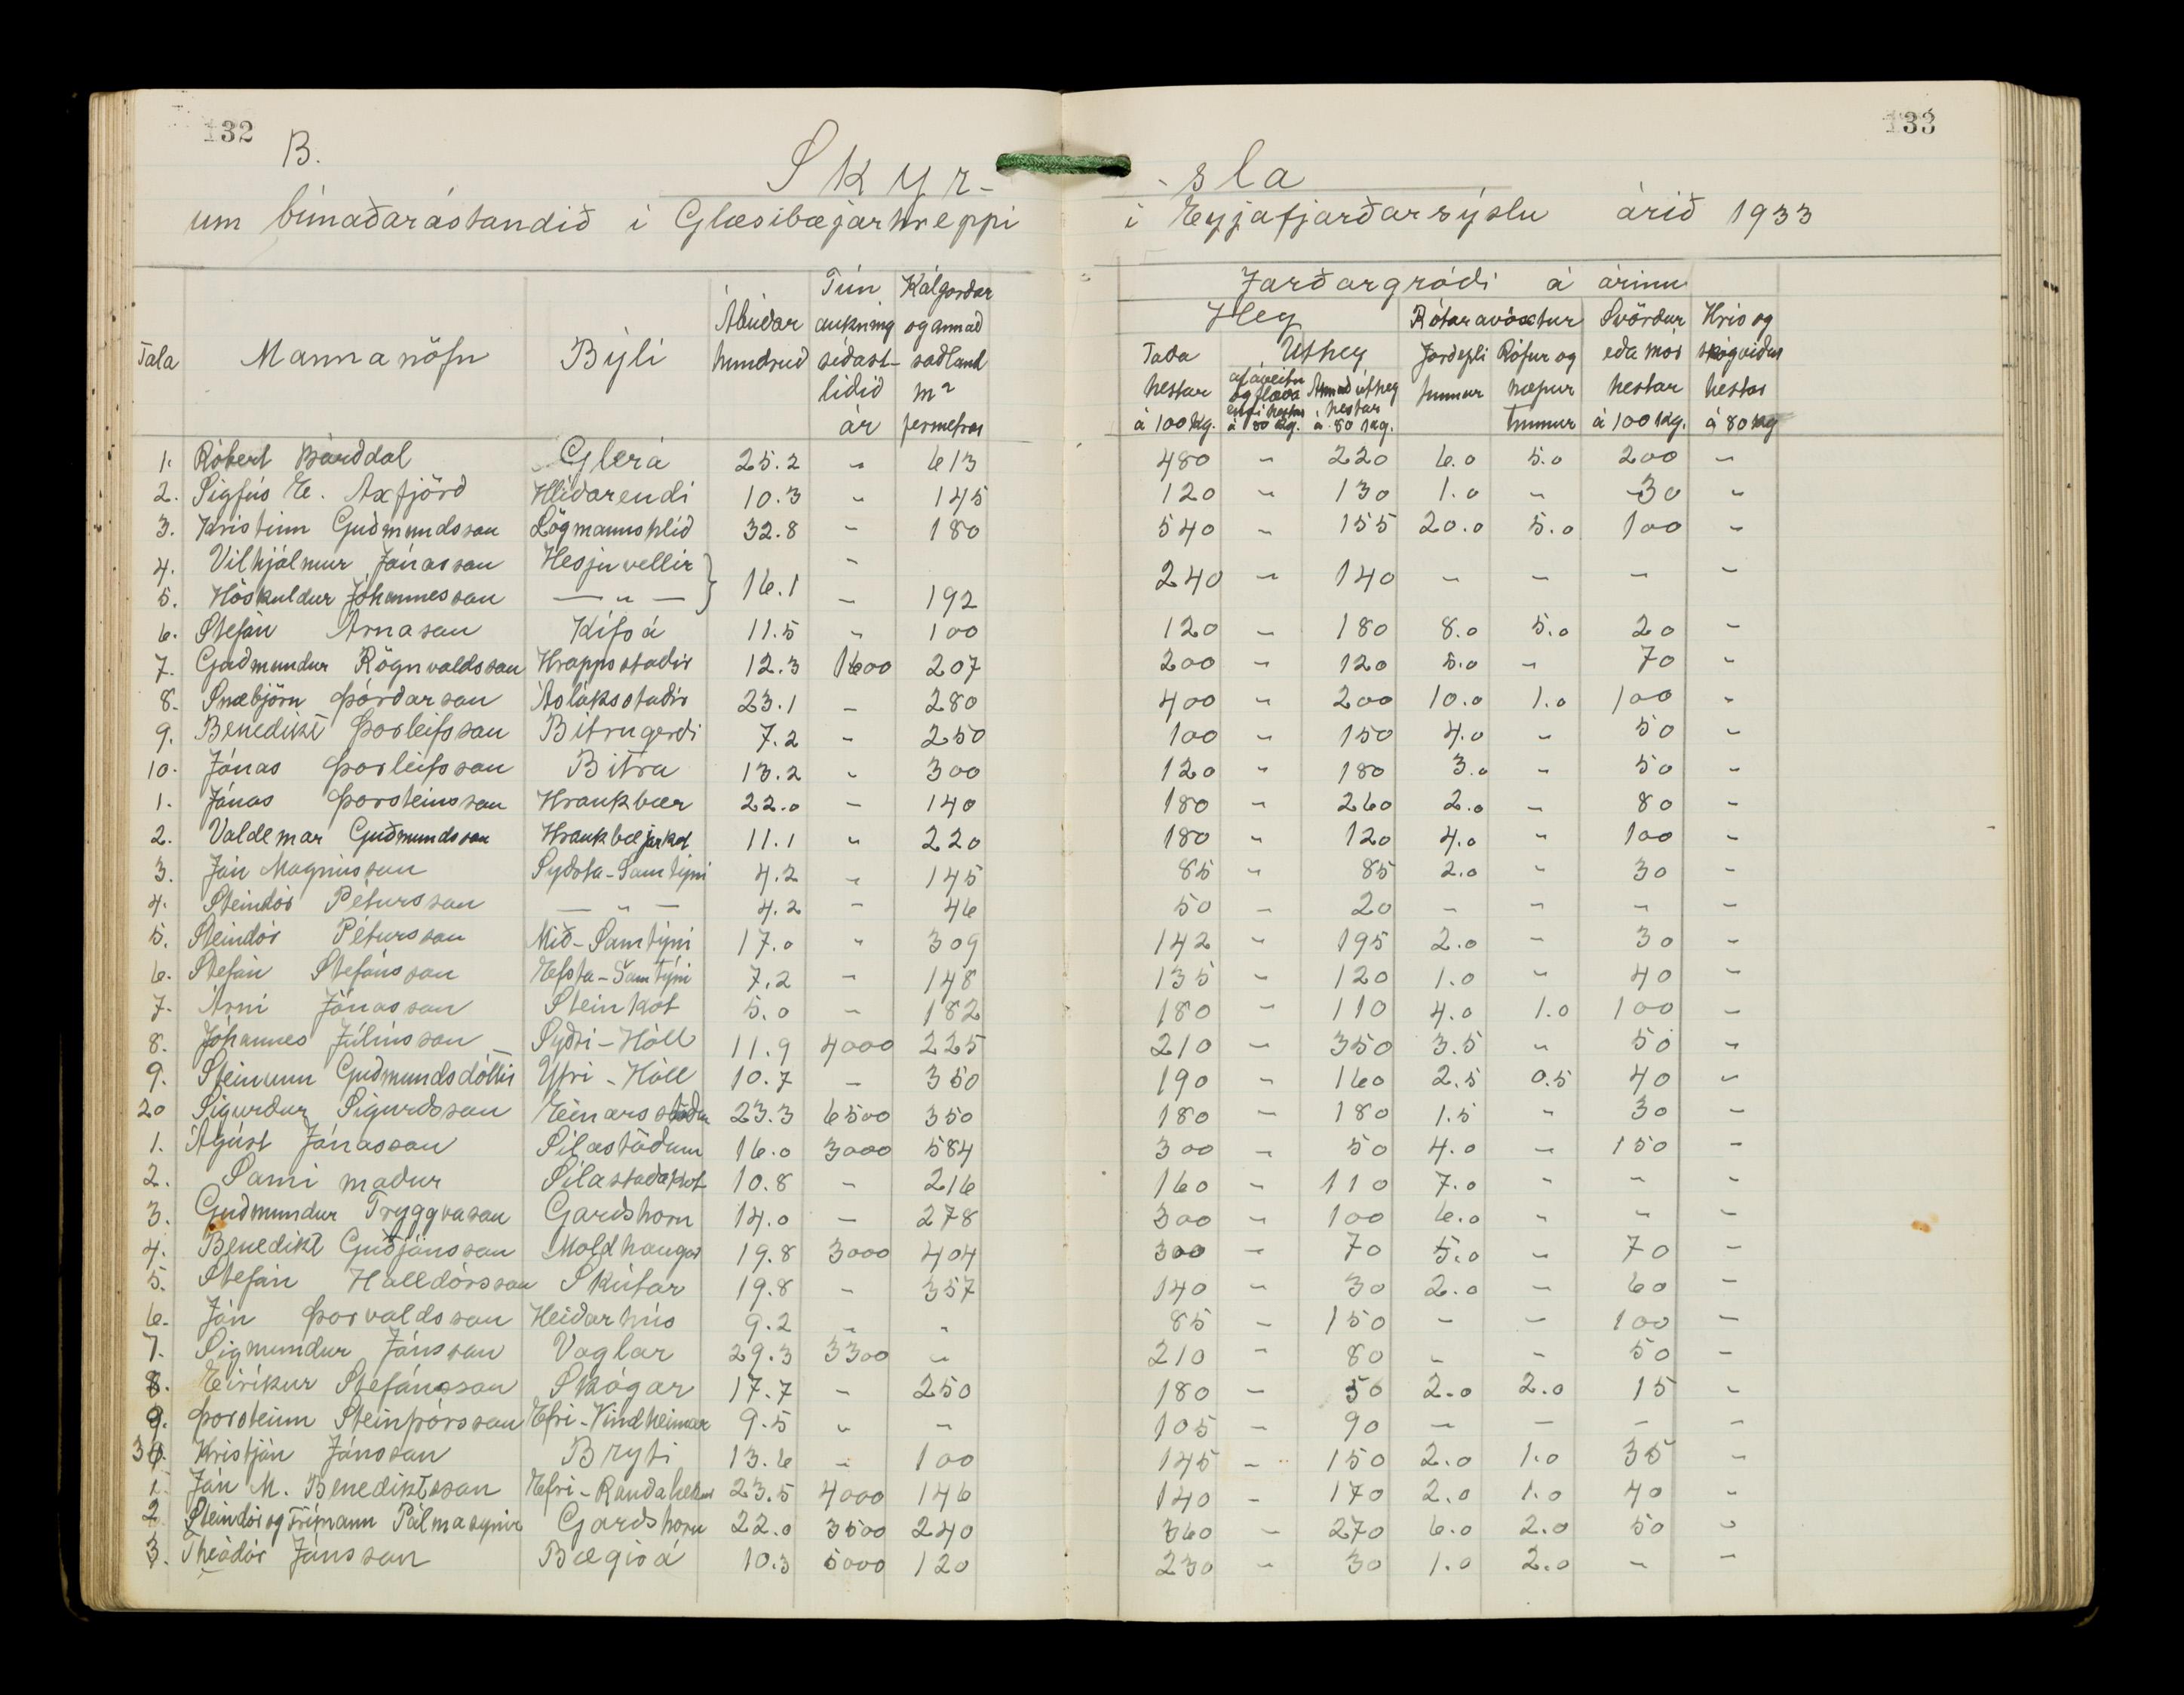 132
133
B.
Skyr- -sla
um búnaðarástandið i Glæsibæjarhreppi i Eyjafjarðarsýslu árið 1933
Tala Mannanöfn Býli Ábúðar hundruð Tún aukning síðastliðið ár Kálgarðar og annað sáðland m² fermetrar Jarðargróði á árinu
Hey Rótarávöxtur Svörður eða mór hestar á 100 kg. Hris og skógviður hestar á 80 kg
Taða hestar á 100 kg. Úthey af áveitu og flæða engi hestar á 80 kg. Annað úthey hestar á 80 kg. Jarðepli tunnur Rófur og næpur tunnur
1. Róbert Bárðdal Glerá 25.2 " 613 480 " 220 6.0 5.0 200 "
2. Sigfús E. Axfjörð Hlíðarendi 10.3 " 145 120 " 130 1.0 " 30 "
3. Kristinn Guðmundsson Lögmannshlíð 32.8 " 180 540 " 155 20.0 5.0 100 "
4. Vilhjálmur Jónasson Hesjuvellir } 16.1 " 240 " 140 " " " "
5. Höskuldur Jóhannesson — " — " 192
6. Stefán Árnason Kífsá 11.5 " 100 120 " 180 8.0 5.0 20 "
7. Guðmundur Rögnvaldsson Hrappsstaðir 12.3 1600 207 200 " 120 5.0 " 70 "
8. Snæbjörn Þórðarson Ásláksstaðir 23.1 " 280 400 " 200 10.0 1.0 100 "
9. Benedikt Þorleifsson Bitrugerði 7.2 " 250 100 " 150 4.0 " 50 "
10. Jónas Þorleifsson Bitra 13.2 " 300 120 " 180 3.0 " 50 "
1. Jónas Þorsteinsson Hraukbær 22.0 " 140 180 " 260 2.0 " 80 "
2. Valdemar Guðmundsson Hraukbæjarkot 11.1 " 220 180 " 120 4.0 " 100 "
3. Jón Magnússon Syðsta-Samtýni 4.2 " 145 85 " 85 2.0 " 30 "
4. Steindór Pétursson — " — 4.2 " 46 50 " 20 " " " "
5. Steindór Pétursson Mið-Samtýni 17.0 " 309 142 " 195 2.0 " 30 "
6. Stefán Stefánsson Efsta-Samtýni 7.2 " 148 135 " 120 1.0 " 40 "
7. Árni Jónasson Steinkot 5.0 " 182 180 " 110 4.0 1.0 100 "
8. Jóhannes Júlíusson Syðri-Hóll 11.9 4000 225 210 " 350 3.5 " 50 "
9. Steinunn Guðmundsdóttir Ytri-Hóll 10.7 " 350 190 " 160 2.5 0.5 40 "
20 Sigurður Sigurðsson Einarsstöðum 23.3 6500 350 180 " 180 1.5 " 30 "
1. Ágúst Jónasson Sílastöðum 16.0 3000 584 300 " 50 4.0 " 150 "
2. Sami maður Sílastaðakot 10.8 " 216 160 " 110 7.0 " " "
3. Guðmundur Tryggvason Garðshorn 14.0 " 278 300 " 100 6.0 " " "
4. Benedikt Guðjónsson Moldhaugar 19.8 3000 404 300 " 70 5.0 " 70 "
5. Stefán Halldórsson Skútar 19.8 " 357 140 " 30 2.0 " 60 "
6. Jón Þorvaldsson Heiðarhús 9.2 " " 85 " 150 " " 100 "
7. Sigmundur Jónsson Vaglar 29.3 3300 " 210 " 80 " " 50 "
8. Eiríkur Stefánsson Skógar 17.7 " 250 180 " 50 2.0 2.0 15 "
9. Þorsteinn Steinþórsson Efri-Vindheimar 9.5 " " 105 " 90 " " " "
30. Kristján Jónsson Bryti 13.6 " 100 145 " 150 2.0 1.0 35 "
1 Jón M. Benediktsson Efri-Rauðalækur 23.5 4000 146 140 " 170 2.0 1.0 40 "
2 Steindór og Frímann Pálmasynir Garðshorn 22.0 3500 240 360 " 270 6.0 2.0 50 "
3. Theódór Jónsson Bægisá 10.3 5000 120 230 " 30 1.0 2.0 " "